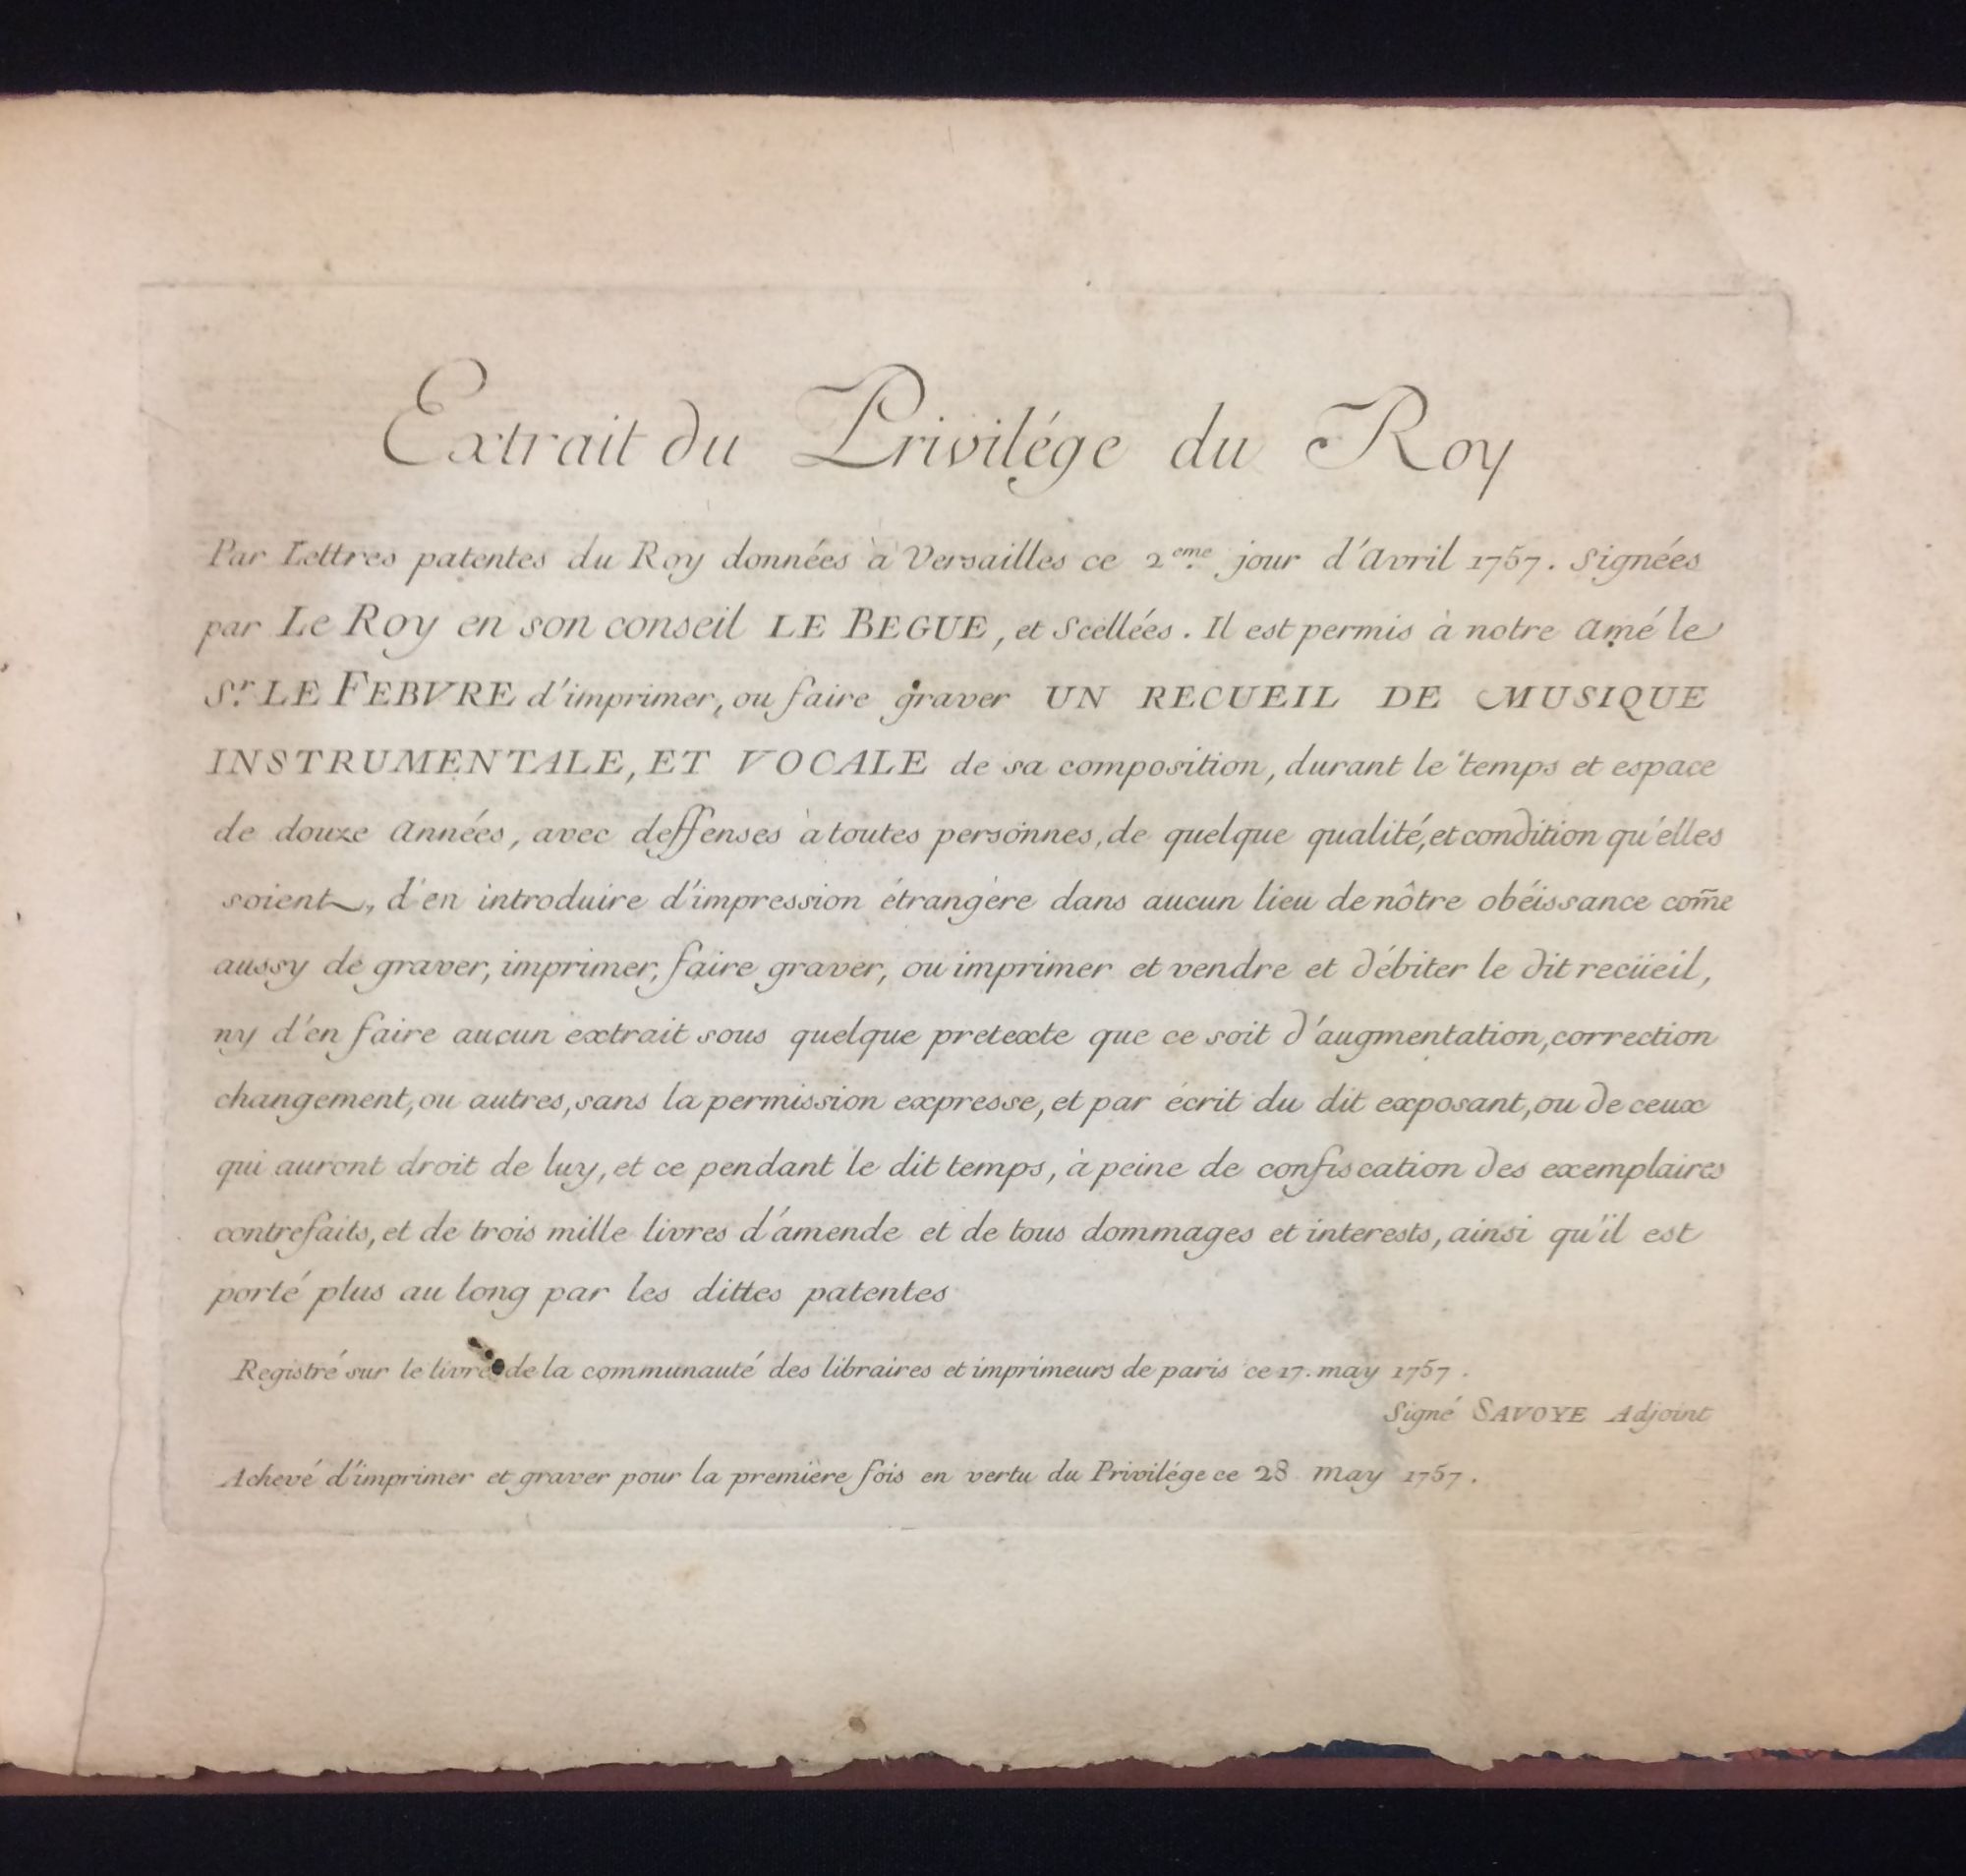 Extrait du Privilége du Roy
Par Lettres patentes du Roy données à Versailles ce 2eme. jour d'Avril 1757. Signées
par Le Roy en son conseil LE BEGUE, et Scellées. Il est permis à notre Amé le
Sr. LE FEBVRE d'imprimer, ou faire graver UN RECUEIL DE MUSIQUE
INSTRUMENTALE, ET VOCALE de sa composition, durant le temps et espace
de douze Années, avec deffenses à toutes personnes, de quelque qualité, et condition qu'elles
soient, d'en introduire d'impression étrangère dans aucun lieu de nôtre obéissance com̃e
aussy de graver, imprimer, faire graver, ou imprimer et vendre et débiter le dit recüeil,
ny d'en faire aucun extrait sous quelque pretexte que ce soit d'augmentation, correction
changement, ou autres, sans la permission expresse, et par écrit du dit exposant, ou de ceux
qui auront droit de luy, et ce pendant le dit temps, à peine de confiscation des exemplaires
contrefaits, et de trois mille livres d'amende et de tous dommages et interests, ainsi qu'il est
porté plus au long par les dittes patentes
Registré sur le livre de la communauté des libraires et imprimeurs de paris ce 17. may 1757.
Signé SAVOYE Adjoint
Achevé d'imprimer et graver pour la premiere fois en vertu du Privilége ce 28 may 1757.